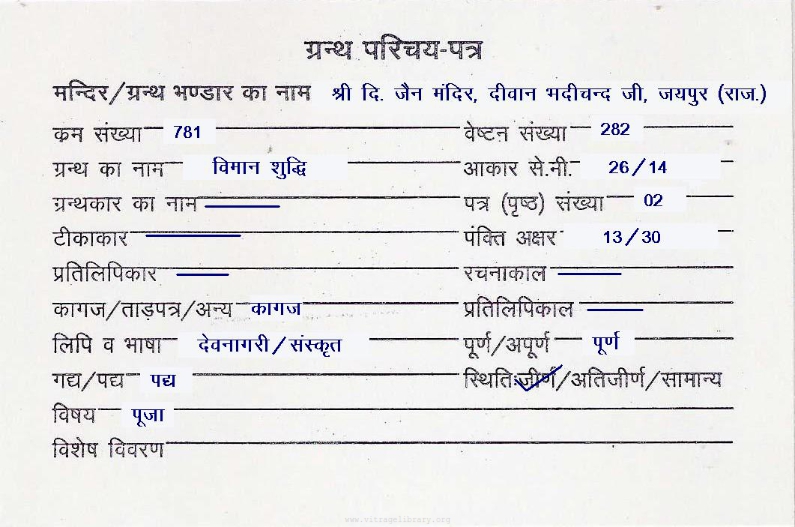 ग्रन्थ परिचय-पत्र
मन्दिर/ग्रन्थ भण्डार का नाम श्री दि. जैन मंदिर, दीवान भदीचन्द जी, जयपुर (राज.)
क्रम संख्या 781 वेष्टन संख्या 282
ग्रन्थ का नाम विमान शुद्धि आकार से.मी. 26/14
ग्रन्थकार का नाम पत्र (पृष्ठ) संख्या 02
टीकाकार पंक्ति अक्षर 13/30
प्रतिलिपिकार रचनाकाल
कागज/ताड़पत्र/अन्य कागज प्रतिलिपिकाल
लिपि व भाषा देवनागरी/संस्कृत पूर्ण/अपूर्ण पूर्ण
गद्य/पद्य पद्य स्थिति:जीर्ण/अतिजीर्ण/सामान्य
विषय पूजा
विशेष विवरण
www.vitragelibrary.org